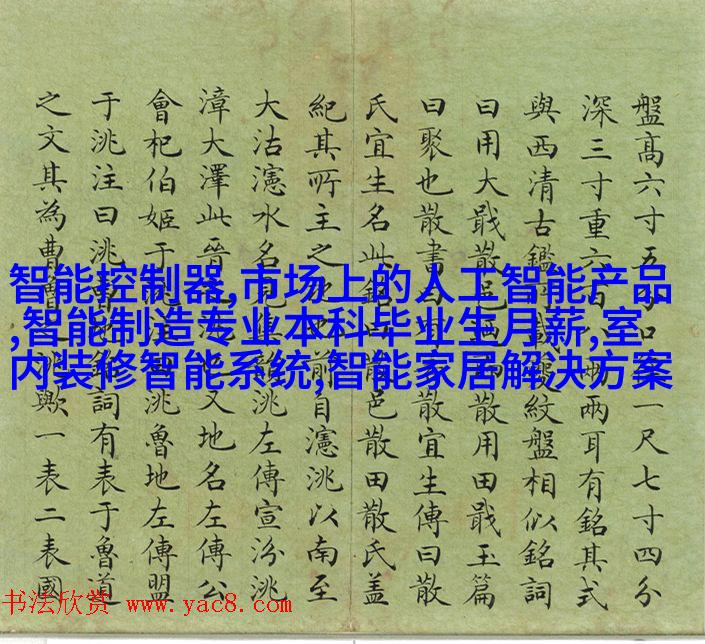 盤高六寸五分口一尺七寸四分
深三寸重六百八兩兩耳有銘其式
與西清古鑑載夔紋盤相似銘詞
曰用大戢散邑散用田戢玉篇
曰聚也散書散宜生傳曰散
氏宜生名此銘散邑散田散氏蓋
紀其所主之地也前自瀗洮以南至
大沽瀗水名見集韻洮左傳宣汾洮
漳大澤此晉洮也又地名左傳公
會杞伯姬于洮注曰洮魯地左傳盟
于洮注曰洮曹地銘詞有表于魯道
之文其為曹魯之洮歟一表二表國
智能控制器,市场上的人工智能产品
,智能制造专业本科毕业生月薪,室
内装修智能系统,智能家居解决方案
书法欣赏 www.yac8.com